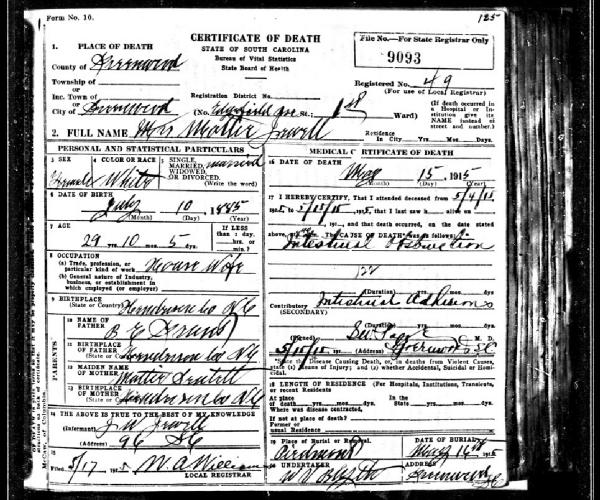 Form No. 10.
125
CERTIFICATE OF DEATH
STATE OF SOUTH CAROLINA
Bureau of Vital Statistics
State Board of Health
File No.—For State Registrar Only
9093
1. PLACE OF DEATH
County of Greenwood
Township of
or
Inc. Town of
or
City of Greenwood
Registration District No.
(No. Edgefield Ave St.; Ward)
Registered No. 49
(For use of Local Registrar)
(If death occurred in a Hospital or Institution give its NAME instead of street and number.)
2. FULL NAME Mrs Mollie Jewell
Residence
In City Yrs. Mos. Days
PERSONAL AND STATISTICAL PARTICULARS
3 SEX
Female
4 COLOR OR RACE
White
5 SINGLE, MARRIED, WIDOWED, OR DIVORCED.
married
(Write the word)
6 DATE OF BIRTH
July 10 1885
(Month) (Day) (Year)
7 AGE
29 yrs. 10 mos. 5 ds.
If LESS than 1 day, hrs. or min.
8 OCCUPATION
(a) Trade, profession, or particular kind of work House Wife
(b) General nature of Industry, business, or establishment in which employed (or employer)
9 BIRTHPLACE
(State or Country) Henderson Co NC
PARENTS
10 NAME OF FATHER
B E
11 BIRTHPLACE OF FATHER
(State or Country) Henderson Co NC
12 MAIDEN NAME OF MOTHER
Mattie
13 BIRTHPLACE OF MOTHER
(State or Country) Henderson Co NC
14 THE ABOVE IS TRUE TO THE BEST OF MY KNOWLEDGE
(Informant) J W Jewell
(Address) 96 SC
15
Filed 5/17 1915 W. A. Williams
LOCAL REGISTRAR
MEDICAL CERTIFICATE OF DEATH
16 DATE OF DEATH
May 15 1915
(Month) (Day) (Year)
17 I HEREBY CERTIFY, That I attended deceased from 5/4/15
1915, to 5/15/15 191, that I last saw h alive on
191, and that death occurred, on the date stated above, at m. The CAUSE OF DEATH was as follows:
Intestinal Obstruction
(Duration) yrs. mos. ds.
Contributory Intestinal Adhesions
(SECONDARY)
(Duration) yrs. mos. ds.
(Signed) M. D.
5/15/15 (Address) Greenwood S C
*State the Disease Causing Death, or, in deaths from Violent Causes, state (1) Means of Injury; and (2) whether Accidental, Suicidal or Homicidal.
18 LENGTH OF RESIDENCE (For Hospitals, Institutions, Transients, or recent Residents
At place of death yrs. mos. ds. In the State yrs. mos. ds.
Where was disease contracted,
If not at place of death?
Former or
usual Residence
19 Place of Burial or Removal
Piedmont
DATE OF BURIAL
May 16th 1915
20 UNDERTAKER
ADDRESS
Greenwood SC